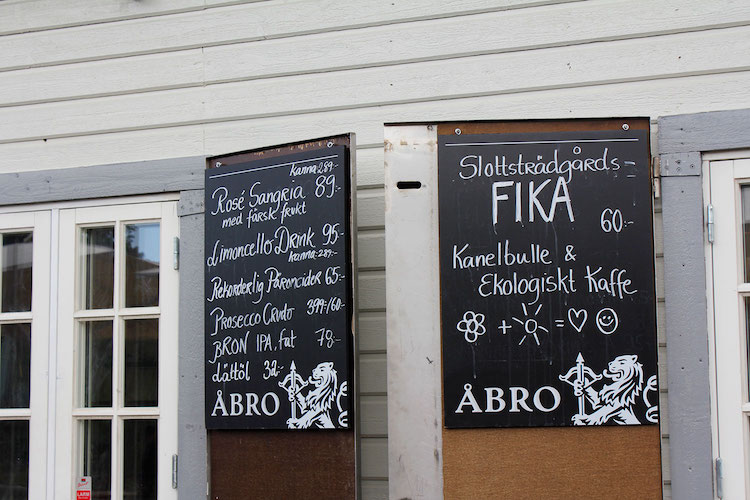 kanna 289:-
Rosé Sangria 89:-
med färsk frukt
Limoncello Drink 95:-
kanna: 289:-
Rekorderlig Päroncider 65:-
Prosecco Crudo 399:-/60:-
BRON IPA, fat 78:-
Lättöl 32:-
ÅBRO
Slottsträdgårds=
FIKA
60:-
Kanelbulle &
Ekologiskt Kaffe
+ = ♡ ☺
ÅBRO
LARM